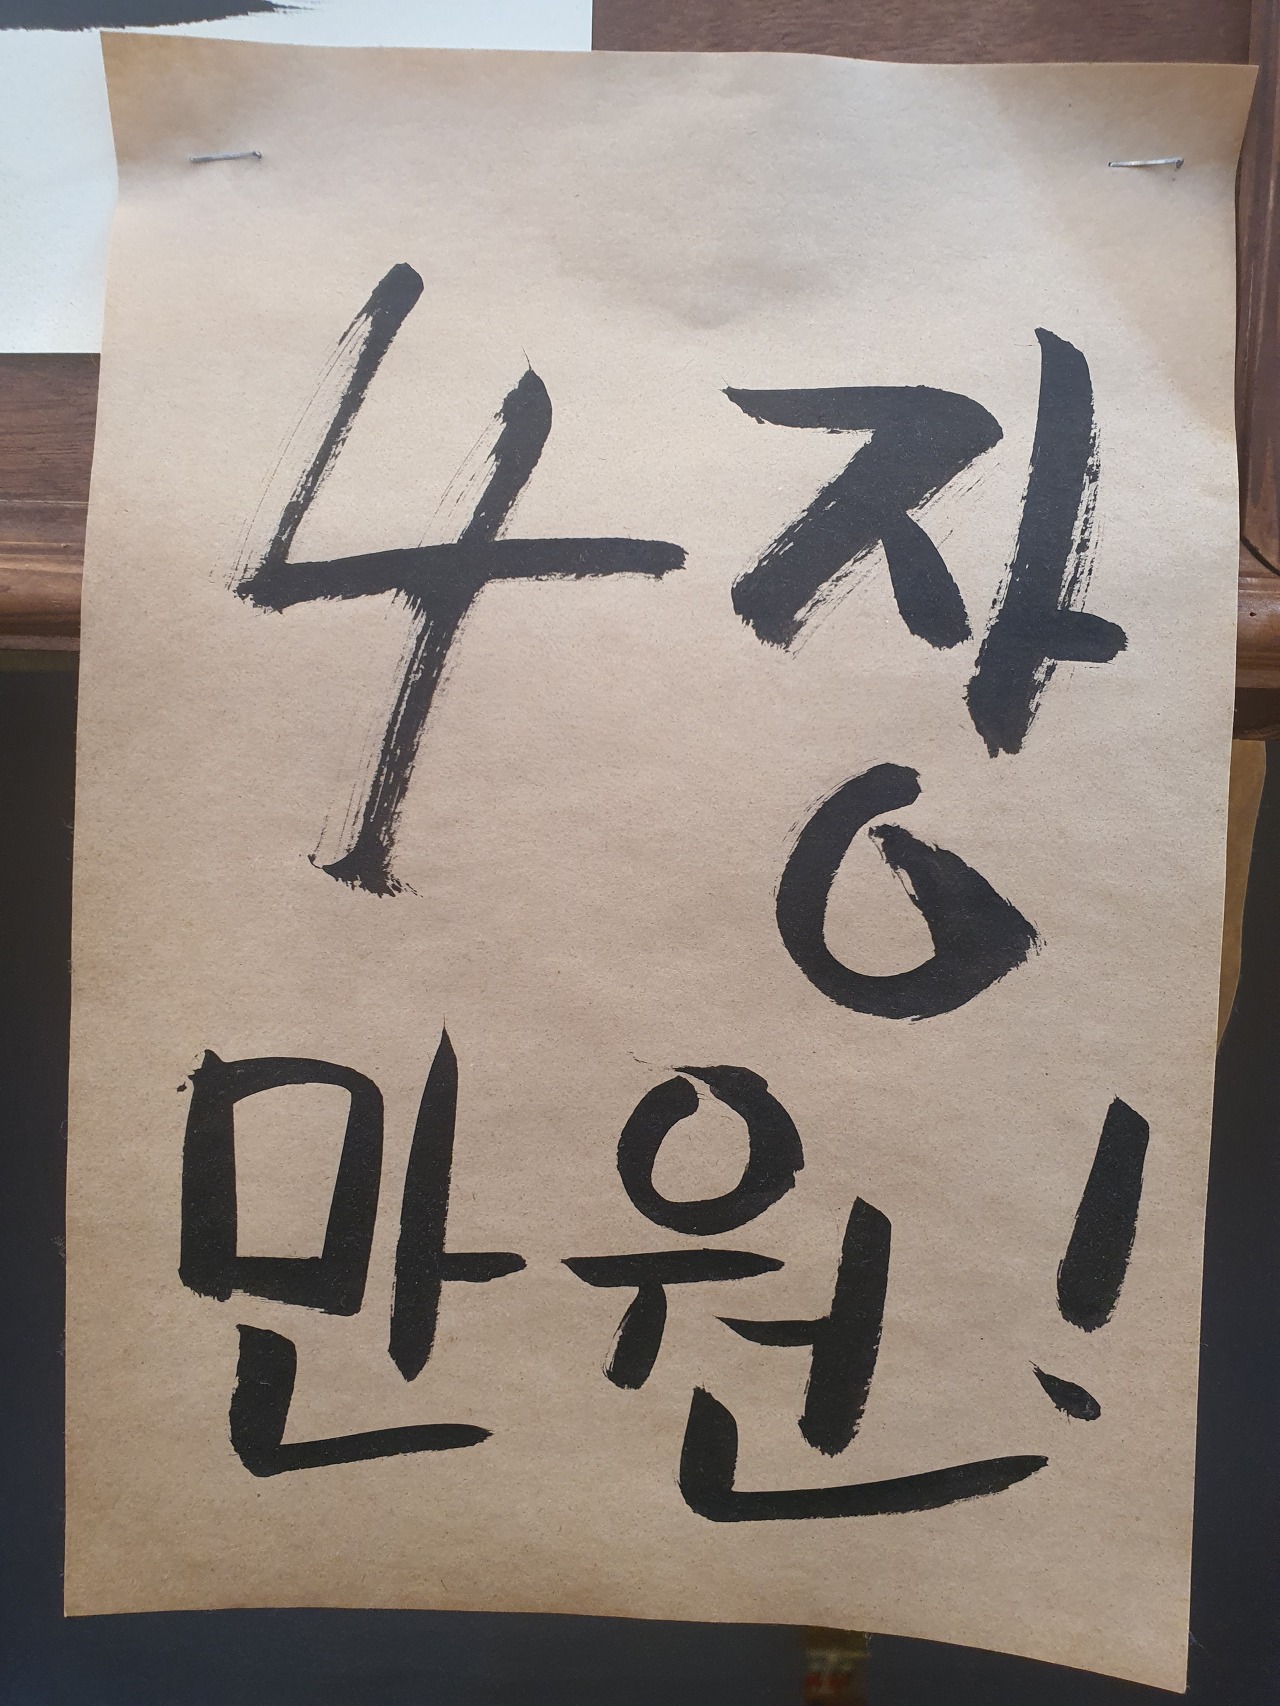 4장
만원!